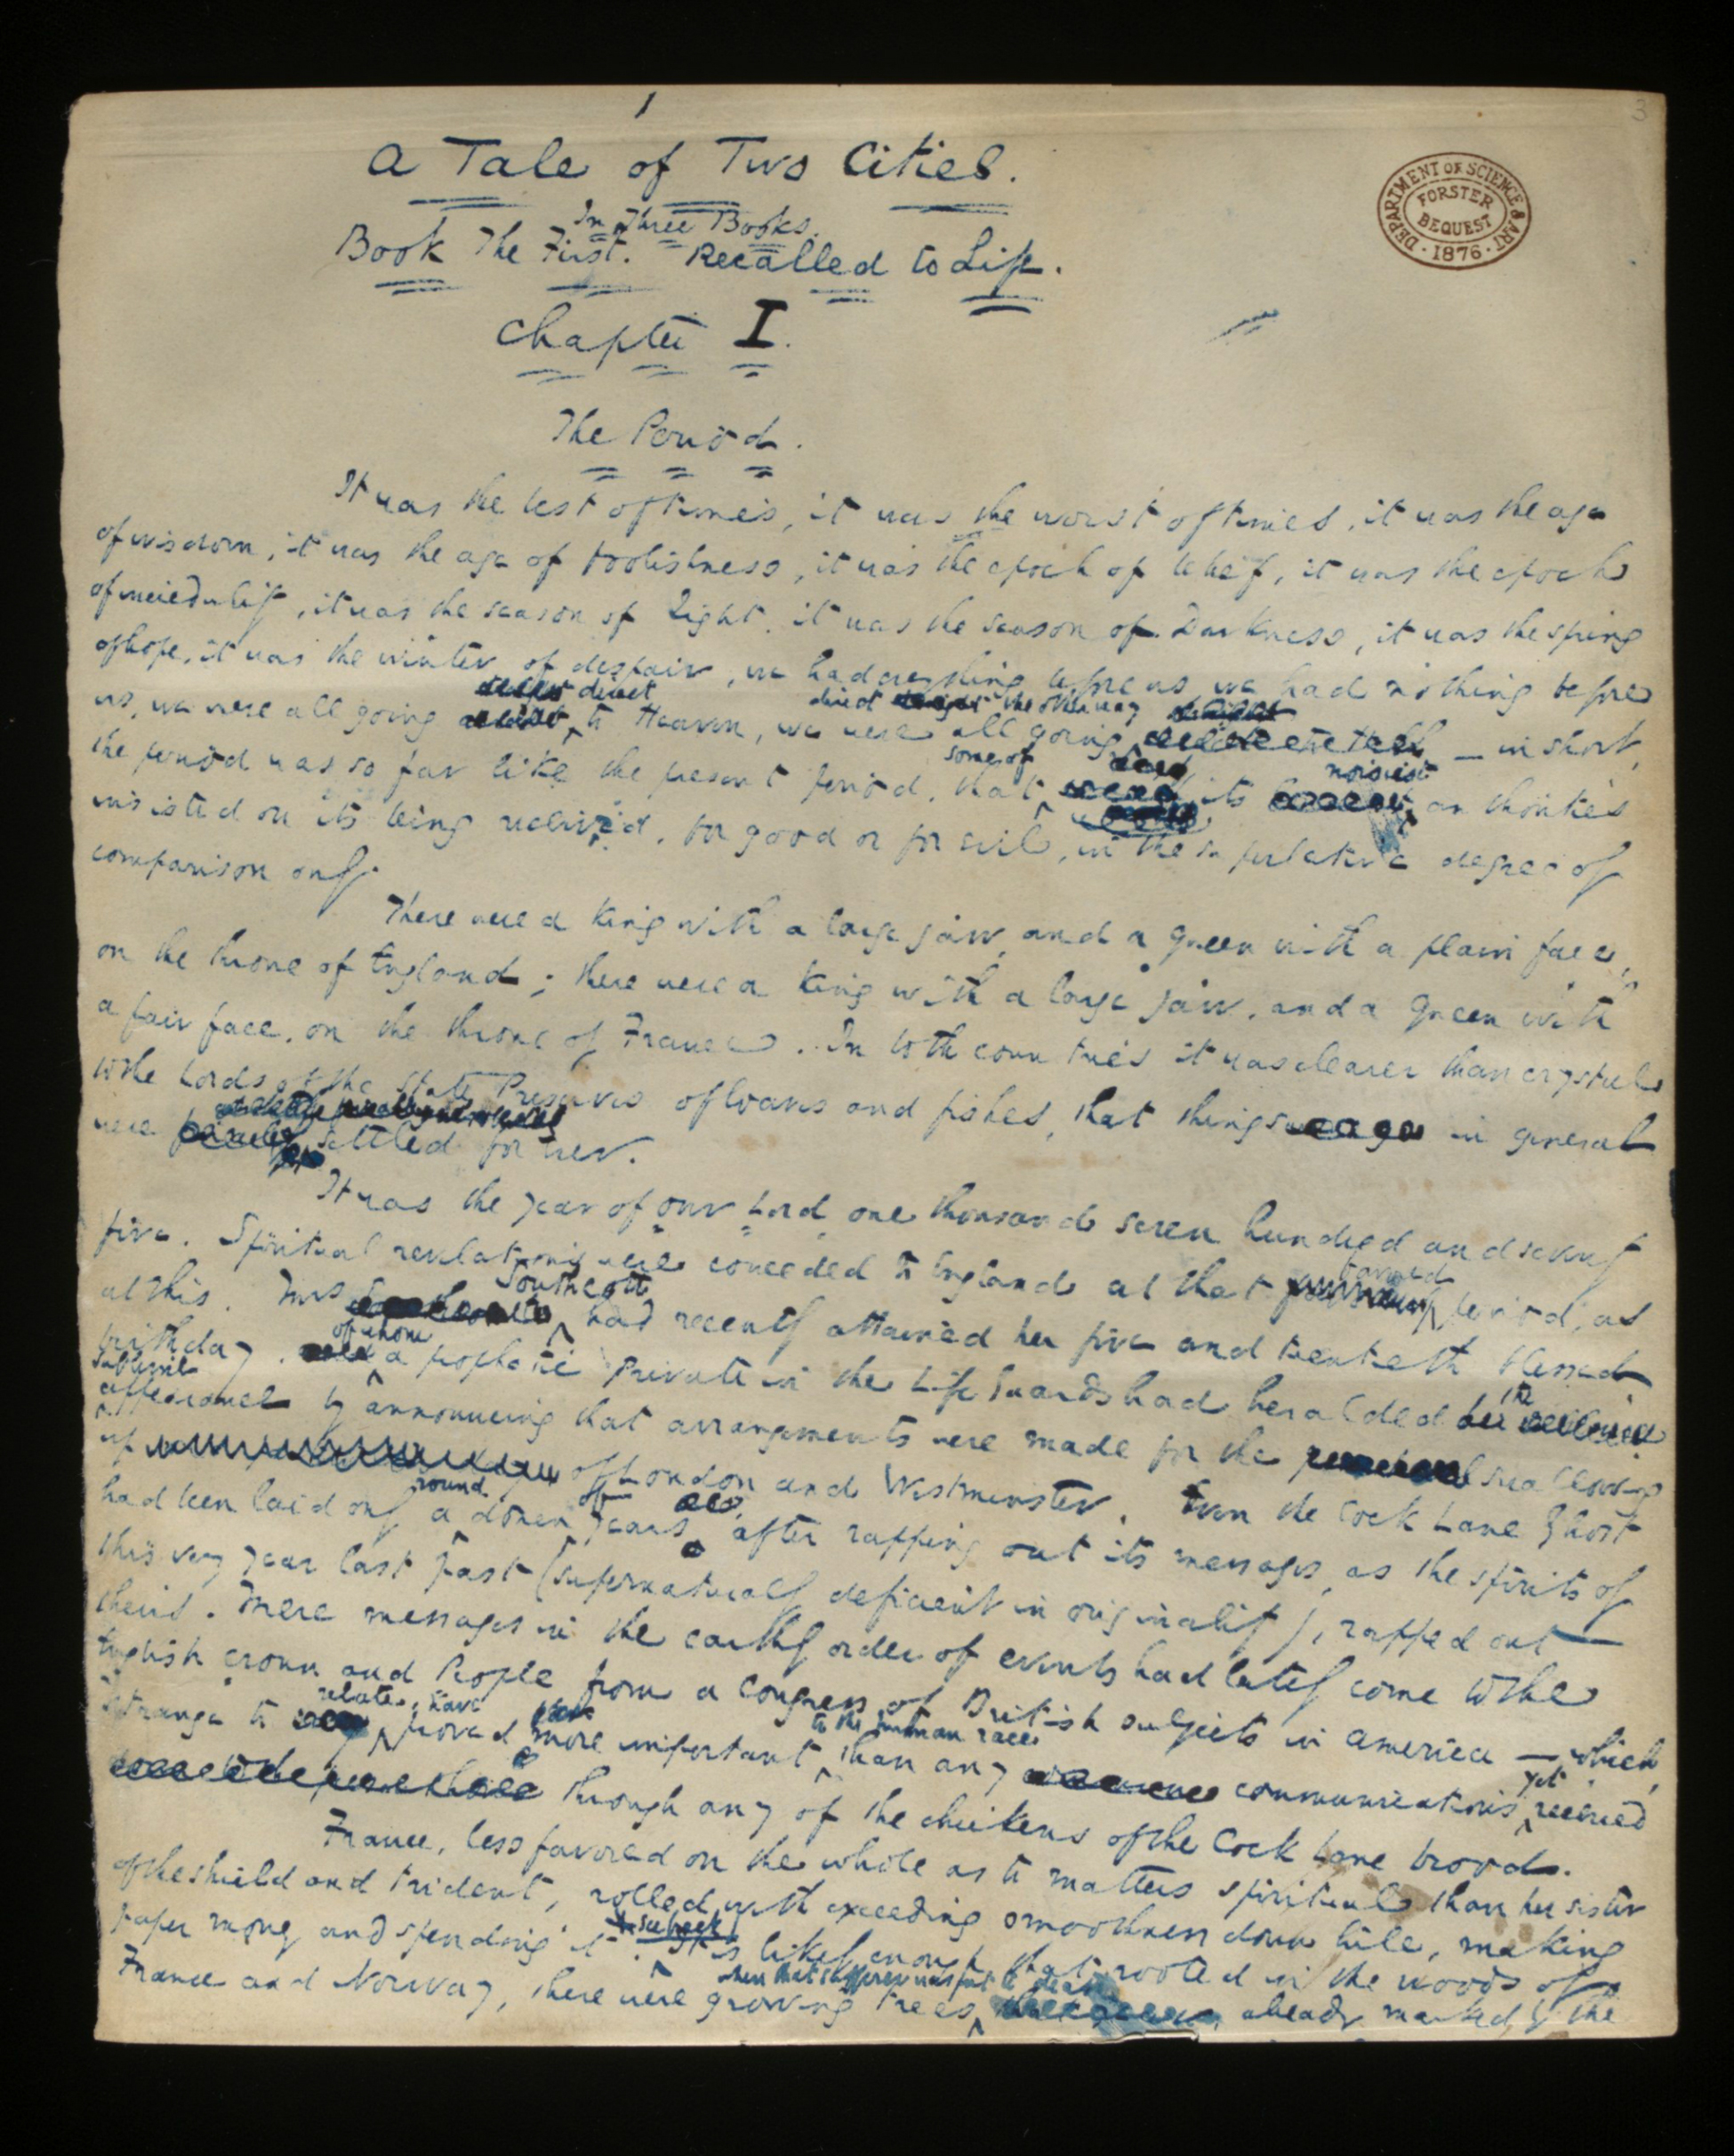 1
3
A Tale of Two Cities.
In Three Books.
Book The First. Recalled to Life.
DEPARTMENT OF SCIENCE & ART
FORSTER
BEQUEST
· 1876 ·
Chapter I.
The Period.
It was the best of times, it was the worst of times, it was the age
of wisdom, it was the age of foolishness, it was the epoch of belief, it was the epoch
of incredulity, it was the season of Light, it was the season of Darkness, it was the spring
of hope, it was the winter of despair, we had everything before us, we had nothing before
us, we were all going direct to Heaven, we were all going direct the other way — in short,
the period was so far like the present period, that some of its noisiest authorities
insisted on its being received, for good or for evil, in the superlative degree of
comparison only.
There were a King with a large jaw, and a Queen with a plain face,
on the throne of England; there were a King with a large jaw, and a Queen with
a fair face, on the throne of France. In both countries it was clearer than crystal
to the Lords of the State Preserves of loaves and fishes, that things in general
were settled for ever.
It was the year of Our Lord one thousand seven hundred and seventy
five. Spiritual revelations were conceded to England at that favored period, as
at this. Mrs Southcott had recently attained her five and twentieth blessed
birthday, of whom a prophetic Private in the Life Guards had heralded the
sublime appearance by announcing that arrangements were made for the swallowing
up of London and Westminster. Even the Cock Lane Ghost
had been laid only a round dozen of years, after rapping out its messages, as the spirits of
this very year last past (supernaturally deficient in originality), rapped out
theirs. Mere messages in the earthly order of events had lately come to the
English crown and People from a Congress of British subjects in America — which,
strange to relate, have proved more important to the human race than any communications yet received
through any of the chickens of the Cock Lane brood.
France, less favored on the whole as to matters spiritual than her sister
of the shield and trident, rolled with exceeding smoothness down hill, making
paper money and spending it. It is likely enough that rooted in the woods of
France and Norway, there were growing trees, when that sufferer was put to death, already marked by the